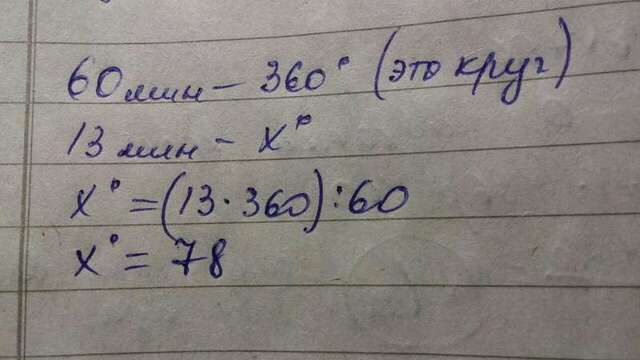 60 мин – 360° (это круг)
13 мин – x°
x° = (13·360):60
x° = 78